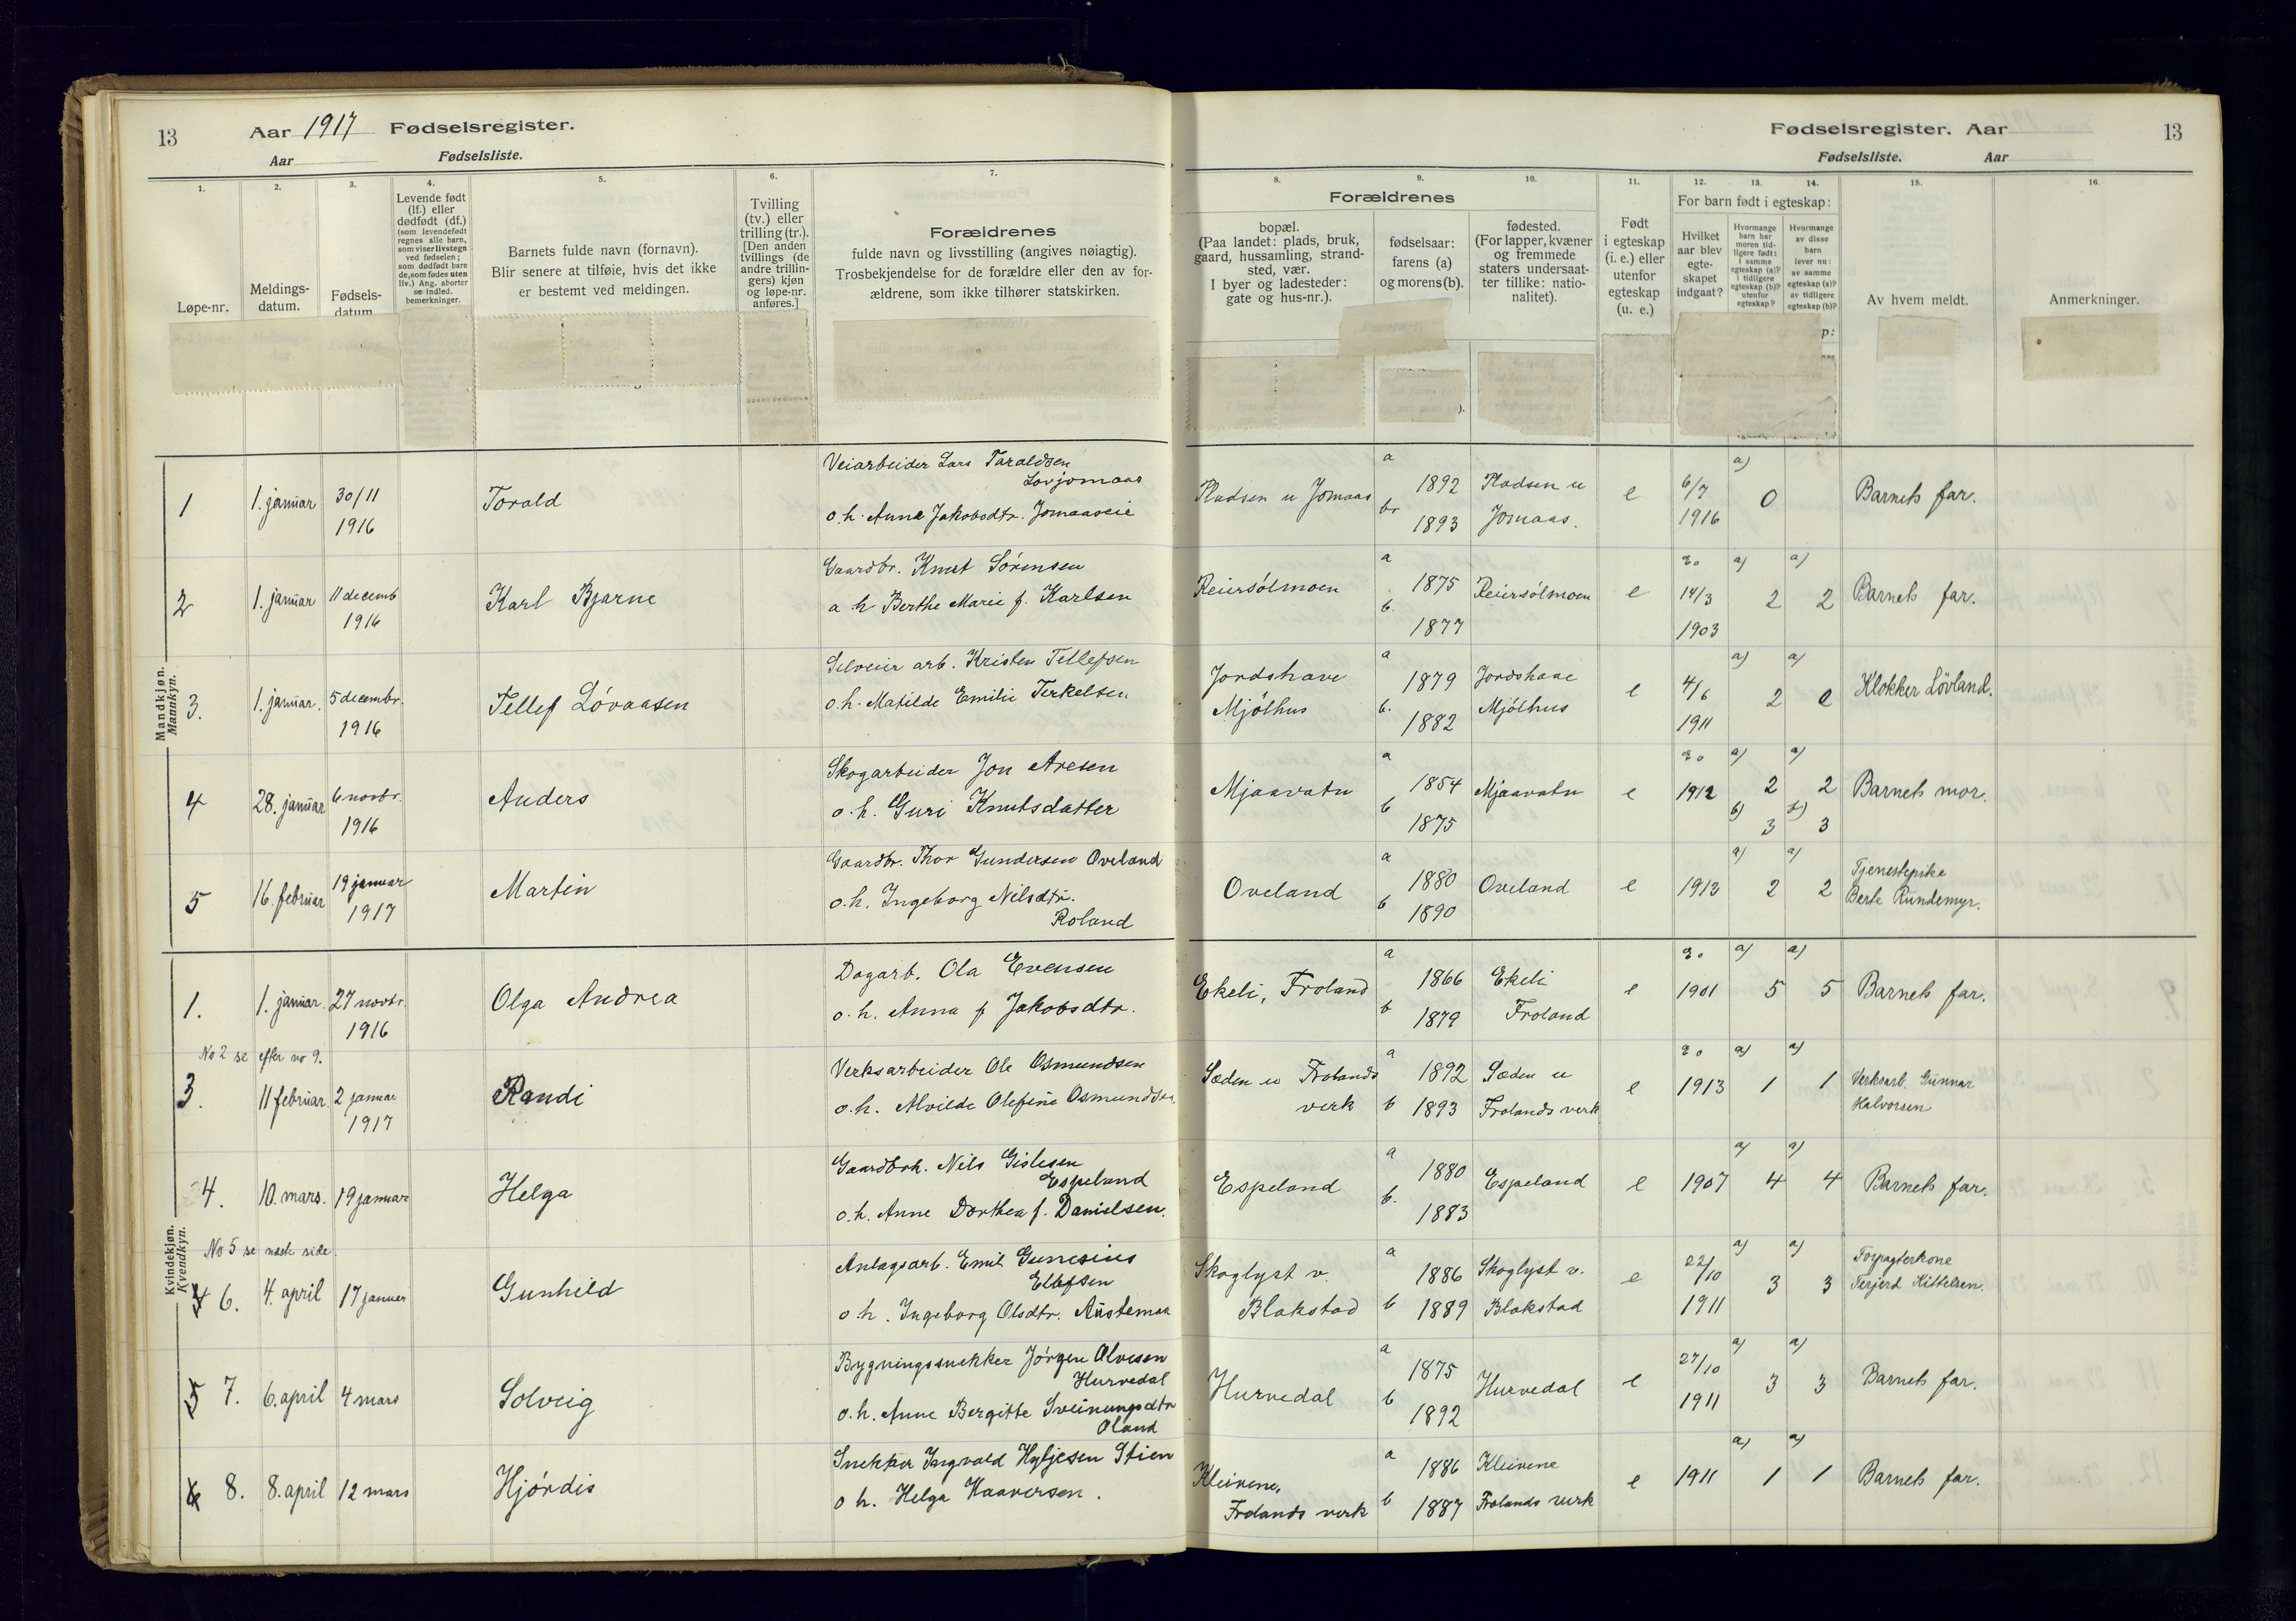 13
Aar 1917 Fødselsregister.
Aar Fødselsliste.
1.
2.
3.
4.
5.
6.
7.
Løpe-nr.
Meldings-
datum.
Fødsels-
datum
Levende født
(lf.) eller
dødfødt (df.)
(som levendefødt
regnes alle barn,
som viser livstegn
ved fødselen;
som dødfødt bare
de, som fødes uten
liv.) Ang. aborter
se indled.
bemerkninger.
Barnets fulde navn (fornavn).
Blir senere at tilføie, hvis det ikke
er bestemt ved meldingen.
Tvilling
(tv.) eller
trilling (tr.).
[Den anden
tvillings (de
andre trillin-
gers) kjøn
og løpe-nr.
anføres.]
Forældrenes
fulde navn og livsstilling (angives nøiagtig).
Trosbekjendelse for de forældre eller den av for-
ældrene, som ikke tilhører statskirken.
Fødselsregister. Aar
13
Fødselsliste. Aar
8.
9.
10.
11.
12.
13.
14.
15.
16.
Forældrenes
bopæl.
(Paa landet: plads, bruk,
gaard, hussamling, strand-
sted, vær.
I byer og ladesteder:
gate og hus-nr.).
fødselsaar:
farens (a)
og morens (b).
fødested.
(For lapper, kvæner
og fremmede
staters undersaat-
ter tillike: natio-
nalitet).
Født
i egteskap
(i. e.) eller
utenfor
egteskap
(u. e.)
For barn født i egteskap:
Hvilket
aar blev
egte-
skapet
indgaat?
Hvormange
barn har
moren tid-
ligere født:
i samme
egteskap (a)?
i tidligere
egteskap (b)?
utenfor
egteskap?
Hvormange
av disse
barn
lever nu:
av samme
egteskap (a)?
av tidligere
egteskap (b)?
Av hvem meldt.
Anmerkninger.
Mandkjøn.
Mannkyn.
1 1. januar 30/11 1916 Torald
Veiarbeider Lars Taraldsen
Lovjomaas
o.h. Anna Jakobsdtr. Jomaaseie
Pladsen u Jomaas a 1892 br 1893 Pladsen u Jomaas. e 6/7 1916 a) 0 Barnets far.
2 1. januar 11 decemb 1916 Karl Bjarne
Gaardbr. Knut Sörensen
a h Berthe Marie f. Karlsen
Reiersölmoen a 1875 b. 1877 Reiersölmoen e 14/3 1903 a) 2 a) 2 Barnets far.
3. 1. januar. 5 decembr. 1916 Tellef Lövaasen
arb. Kristen Tellefsen
o.h. Matilde Emilie Terkelsen
Jordshave Mjölhus a 1879 b. 1882 Jordshave Mjölhus e 4/6 1911 a) 2 a) Klokker Lövland.
4 28. januar 6 novbr. 1916 Anders
Skogarbeider Jon Aresen
o.h. Guri Knutsdatter
Mjaavatn a 1854 b 1875 Mjaavatn e 1912 a) 2 b) 3 a) 2 b) 3 Barnets mor.
5 16. februar 19 januar 1917 Martin
Gaardbr. Thor Gundersen Oveland
o.h. Ingeborg Nilsdtr.
Roland
Oveland a 1880 b 1890 Oveland e 1913 a) 2 a) 2 Tjenestepike
Berte Rundemyr.
Kvindekjøn.
Kvendkyn.
1. 1. januar. 27 novbr. 1916 Olga Andrea
Dagarb. Ola Evensen
o.h. Anna f Jakobsdtr.
Ekeli, Froland a 1866 b 1879 Ekeli Froland e 1901 a) 5 a) 5 Barnets far.
No 2 se efter no 9.
3. 11 februar. 2 januar 1917 Randi
Verksarbeider Ole Osmundsen
o.h. Alvilde Olefine Osmundsen
Sæden u Frolands verk a 1892 b 1893 Sæden u Frolands verk e 1913 a) 1 a) 1 Verksarb. Gunnar
Halvorsen
4. 10. mars. 19 januar Helga
Gaardbrk. Nils Gislesen
Espeland
o.h. Anne Dorthea f. Danielsen.
Espeland a 1880 b. 1883 Espeland e 1907 a) 4 a) 4 Barnets far.
No 5 se næste side.
6. 4. april 17 januar Gunhild
Anlagsarb. Emil Gunesius
Ellefsen
o.h. Ingeborg Olsdtr. Austemaa
Skoglyst v. Blakstad a 1886 b 1889 Skoglyst v. Blakstad e 22/10 1911 a) 3 a) 3 Forpagterkone
Terjerd Kittelsen.
5 7. 6. april 4 mars Solveig
Bygningssnekker Jörgen Alvesen
Hurvedal
o.h. Anne Bergitte Sveinungsdtr
Oland
Hurvedal a 1875 b 1892 Hurvedal e 27/10 1911 a) 3 a) 3 Barnets far.
6 8. 8. april 12 mars Hjördis
Snekker Ingvald Hyljesen Stien
o h. Helga Haaversen.
Kleivene, Frolands verk a 1886 b 1887 Kleivene Frolands verk e 1911 a) 1 a) 1 Barnets far.